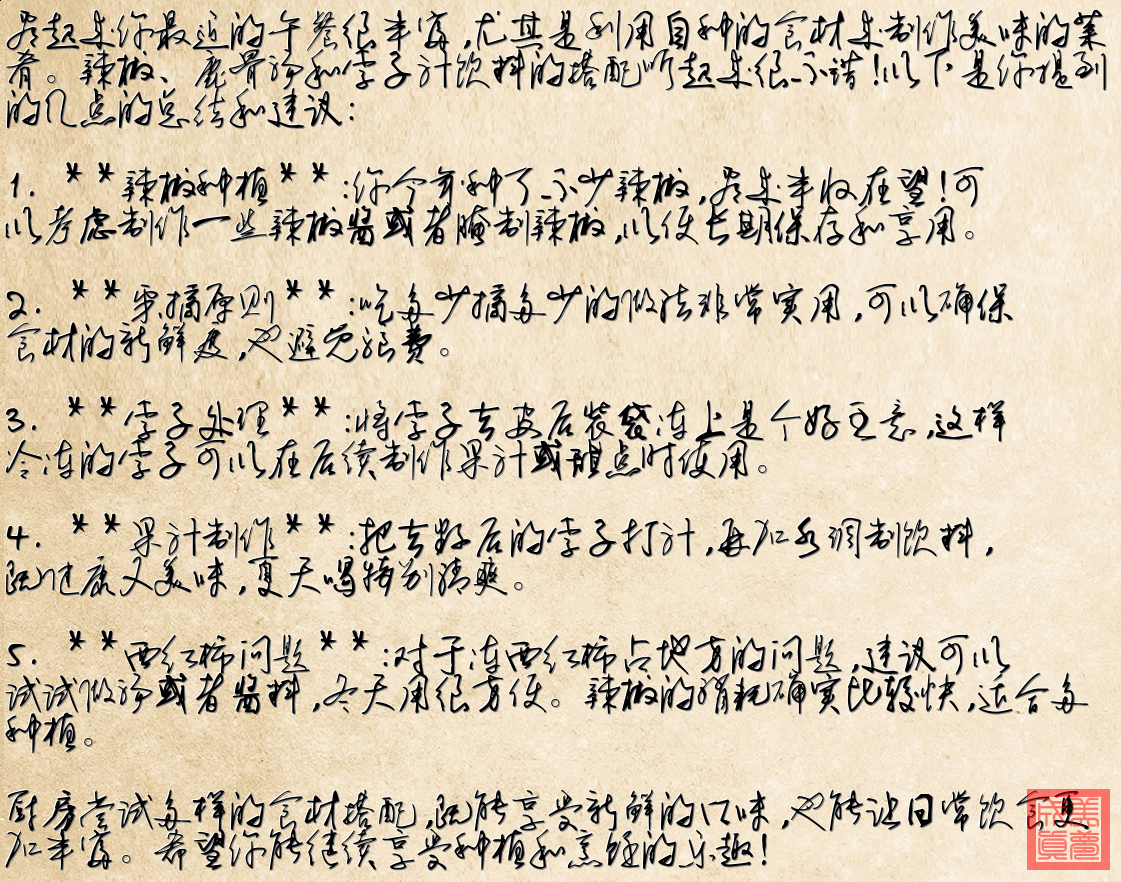 看起来你最近的午餐很丰富，尤其是利用自种的食材来制作美味的菜
肴。辣椒、鹿骨汤和李子汁饮料的搭配听起来很不错！以下是你提到
的几点的总结和建议：
1. **辣椒种植**：你今年种了不少辣椒，看来丰收在望！可
以考虑制作一些辣椒酱或者腌制辣椒，以便长期保存和享用。
2. **采摘原则**：吃多少摘多少的做法非常实用，可以确保
食材的新鲜度，也避免浪费。
3. **李子处理**：将李子去皮后装袋冻上是个好主意，这样
冷冻的李子可以在后续制作果汁或甜点时使用。
4. **果汁制作**：把去籽后的李子打汁，再加水调制饮料，
既健康又美味，夏天喝特别清爽。
5. **西红柿问题**：对于冻西红柿占地方的问题，建议可以
试试做汤或者酱料，冬天用很方便。辣椒的消耗确实比较快，适合多
种植。
厨房尝试多样的食材搭配，既能享受新鲜的口味，也能让日常饮食更
加丰富。希望你能继续享受种植和烹饪的乐趣！